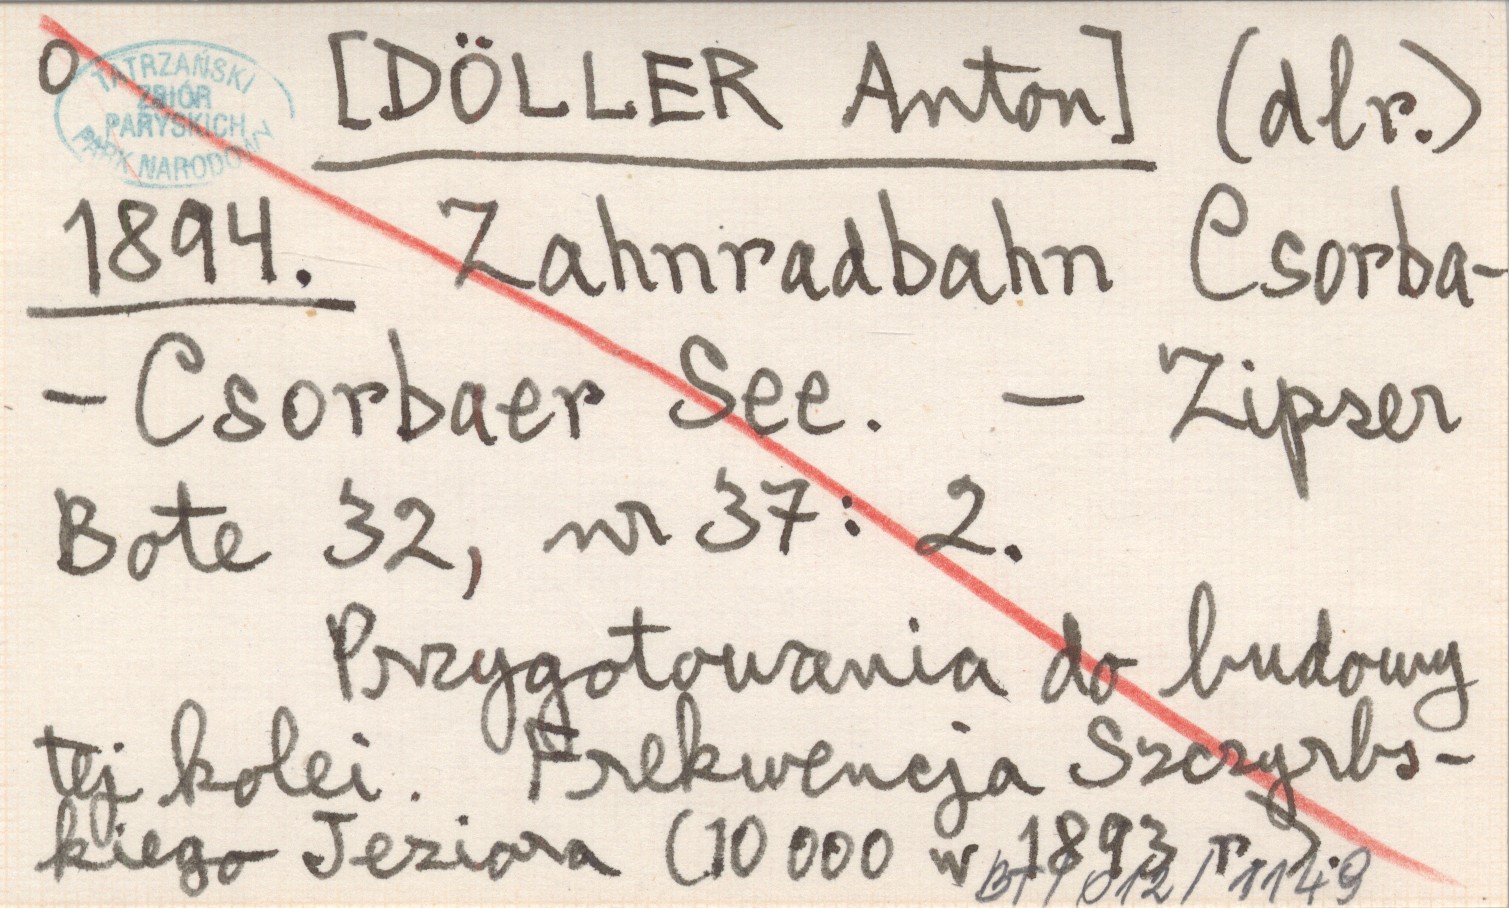 o [DÖLLER Anton] (dlr.)
TATRZAŃSKI
ZBIÓR
PARYSKICH
PARK NARODOWY
1894. Zahnradbahn Csorba-
- Csorbaer See. — Zipser
Bote 32, nr 37: 2.
Przygotowania do budowy
tej kolei. Frekwencja Szczyrbs-
kiego Jeziora (10 000 w 1893 r.).
BT/012/1149